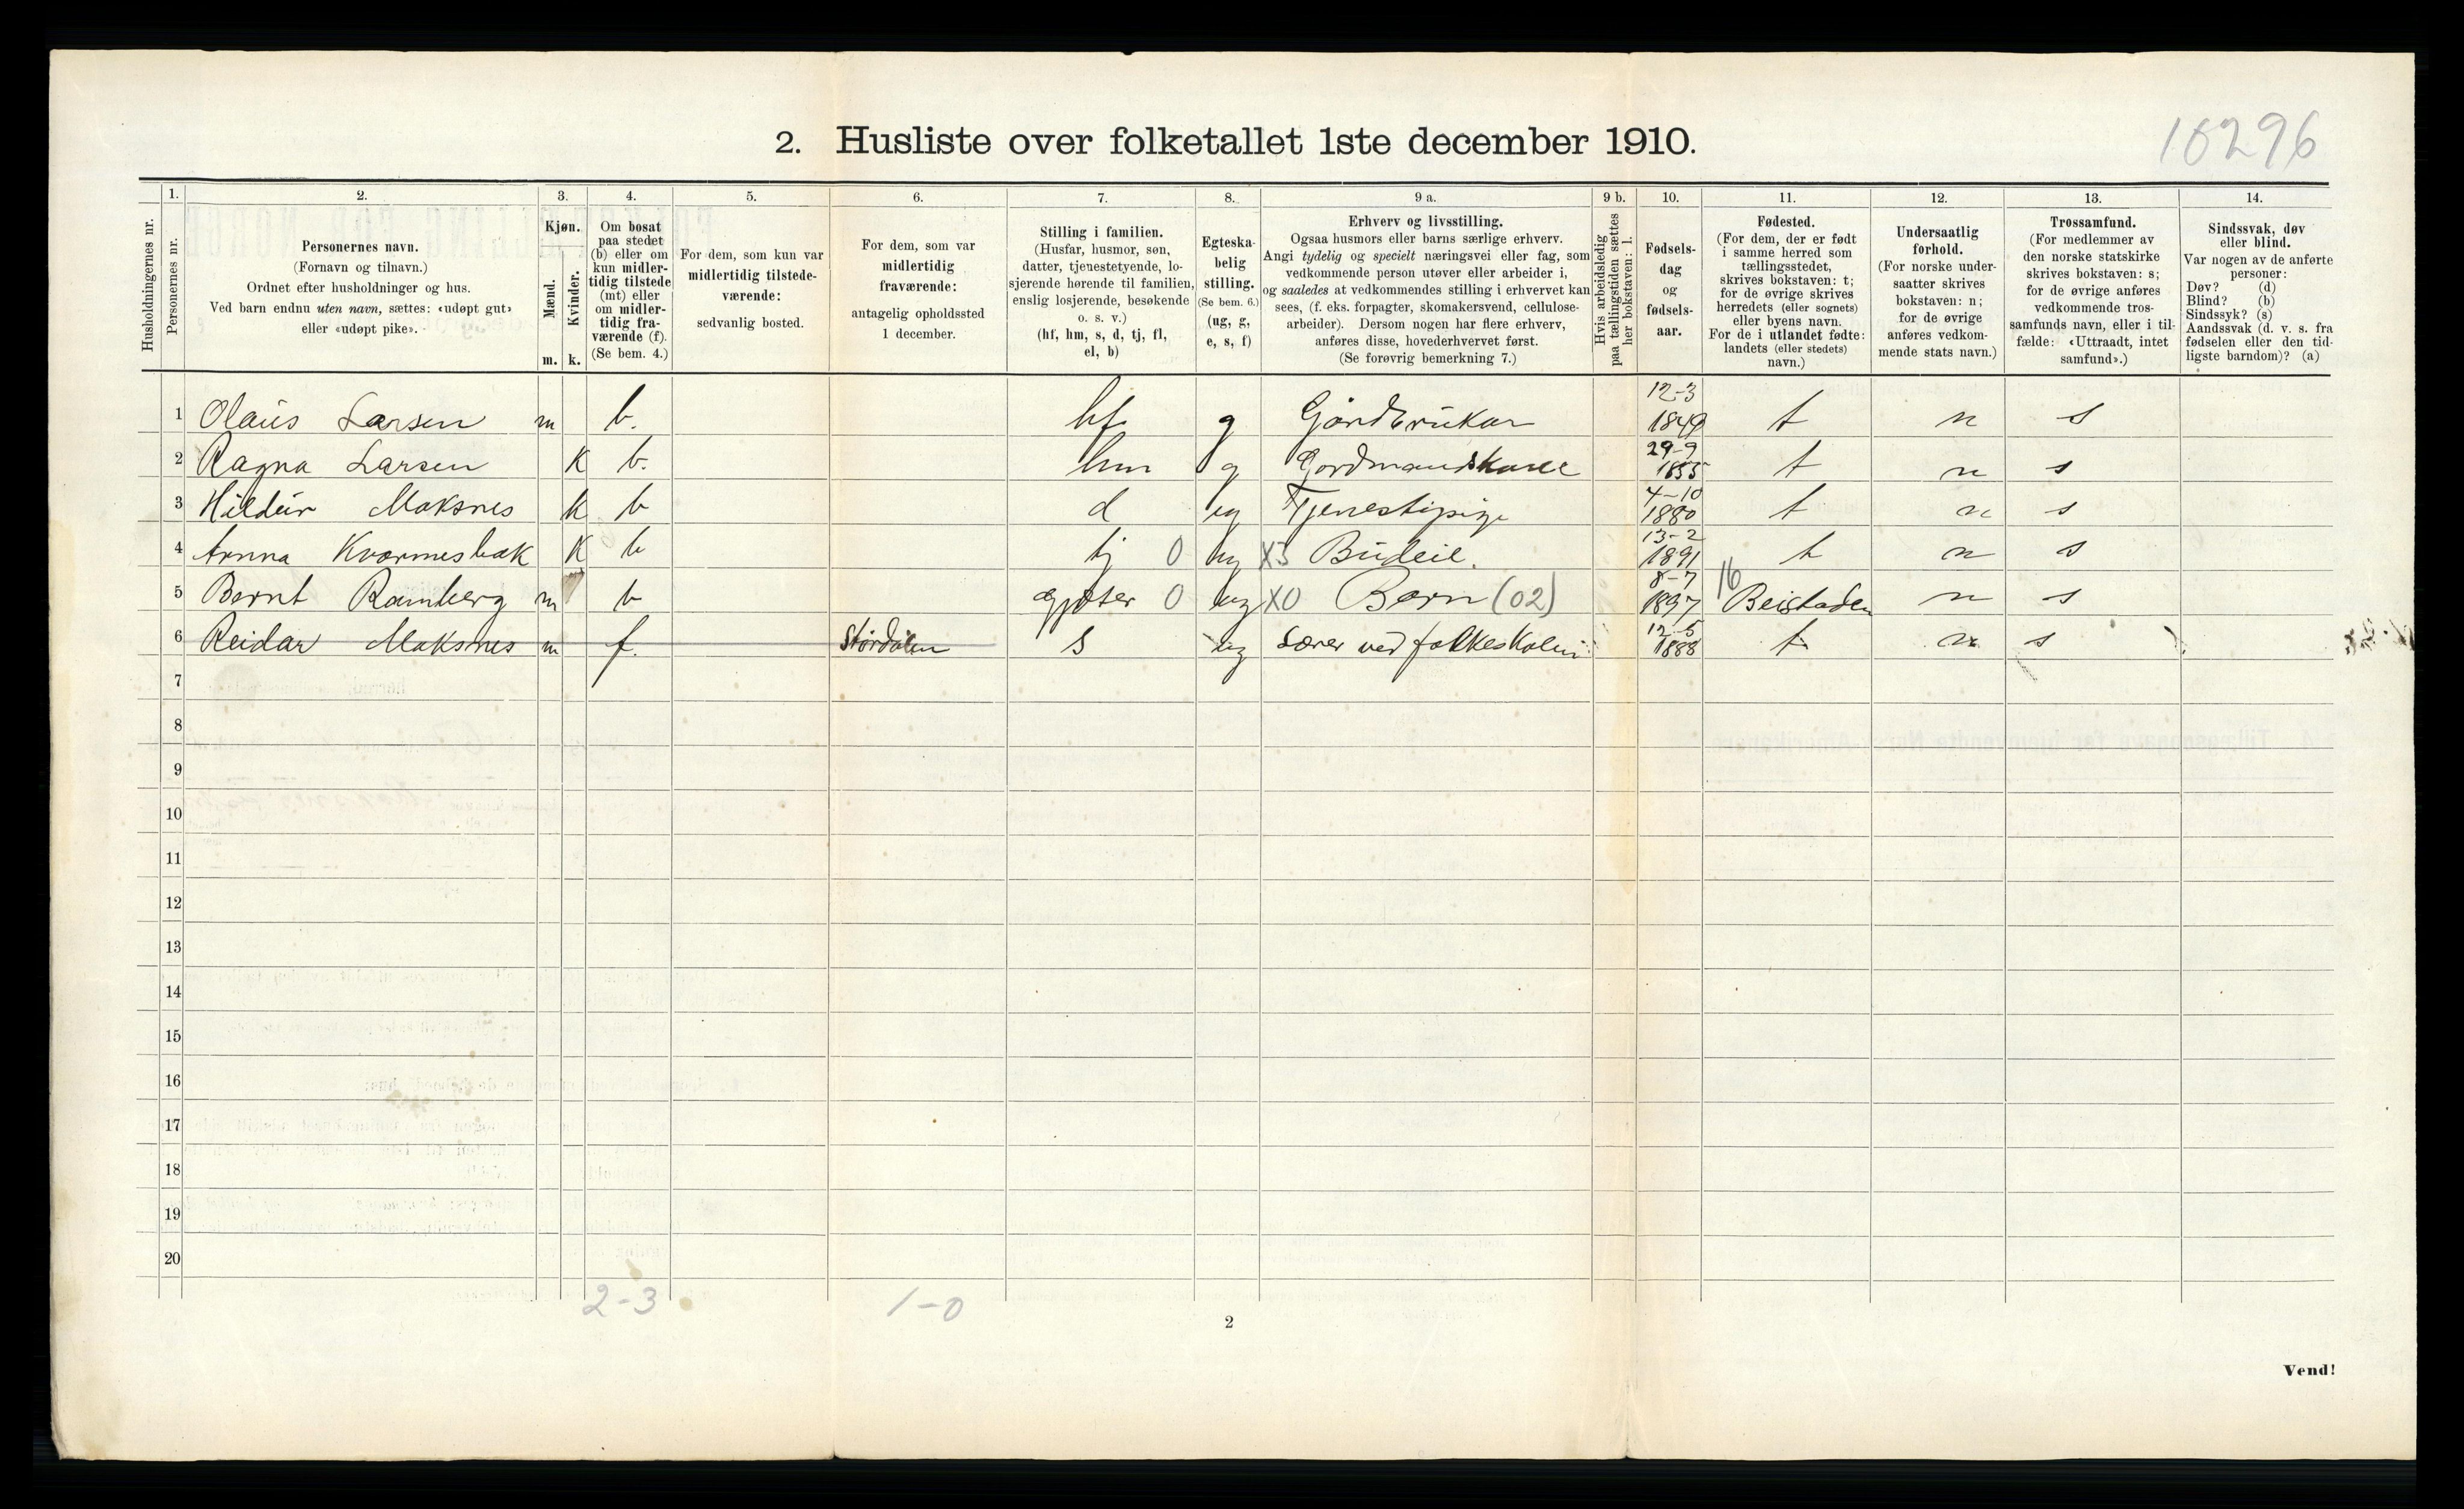 2. Husliste over folketallet 1ste december 1910.
10296
Husholdningernes nr.
1.
Personernes nr.
2.
Personernes navn.
(Fornavn og tilnavn.)
Ordnet efter husholdninger og hus.
Ved barn endnu uten navn, sættes: «udøpt gut»
eller «udøpt pike».
3.
Kjøn.
Mænd.
Kvinder.
m. k.
4.
Om bosat
paa stedet
(b) eller om
kun midler-
tidig tilstede
(mt) eller
om midler-
tidig fra-
værende (f).
(Se bem. 4.)
5.
For dem, som kun var
midlertidig tilstede-
værende:
sedvanlig bosted.
6.
For dem, som var
midlertidig
fraværende:
antagelig opholdssted
1 december.
7.
Stilling i familien.
(Husfar, husmor, søn,
datter, tjenestetyende, lo-
sjerende hørende til familien,
enslig losjerende, besøkende
o. s. v.)
(hf, hm, s, d, tj, fl,
el, b)
8.
Egteska-
belig
stilling.
(Se bem. 6.)
(ug, g,
e, s, f)
9 a.
Erhverv og livsstilling.
Ogsaa husmors eller barns særlige erhverv.
Angi tydelig og specielt næringsvei eller fag, som
vedkommende person utøver eller arbeider i,
og saaledes at vedkommendes stilling i erhvervet kan
sees, (f. eks. forpagter, skomakersvend, cellulose-
arbeider). Dersom nogen har flere erhverv,
anføres disse, hovederhvervet først.
(Se forøvrig bemerkning 7.)
9 b.
Hvis arbeidsledig
paa tællingstiden sættes
her bokstaven: l.
10.
Fødsels-
dag
og
fødsels-
aar.
11.
Fødested.
(For dem, der er født
i samme herred som
tællingsstedet,
skrives bokstaven: t;
for de øvrige skrives
herredets (eller sognets)
eller byens navn.
For de i utlandet fødte:
landets (eller stedets)
navn.)
12.
Undersaatlig
forhold.
(For norske under-
saatter skrives
bokstaven: n;
for de øvrige
anføres vedkom-
mende stats navn.)
13.
Trossamfund.
(For medlemmer av
den norske statskirke
skrives bokstaven: s;
for de øvrige anføres
vedkommende tros-
samfunds navn, eller i til-
fælde: «Uttraadt, intet
samfund».)
14.
Sindssvak, døv
eller blind.
Var nogen av de anførte
personer:
Døv? (d)
Blind? (b)
Sindssyk? (s)
Aandssvak (d. v. s. fra
fødselen eller den tid-
ligste barndom)? (a)
1 Olaus Larsen m b. hf g Gårdbrukar 12-3 1849 t n s
2 Ragna Larsen K b. hm g Gordmandskone 29-9 1855 t n s
3 Hildur Moksnes K b d ug Tjenestepige 4-10 1880 t n s
4 Anna Kvarmesbak K b tj 0 ug X3 Budeie. 13-2 1891 t n s
5 Bernt Ramberg m b gjæter 0 ug X0 Barn (02) 8-7 1897 16 Beistaden n s
6 Reidar Moksnes m f. Størdalen s ug Lærer ved folkeskolen 12-5 1888 t n s
7
8
9
10
11
12
13
14
15
16
17
18
19
20
2-3 1-0
2
Vend!